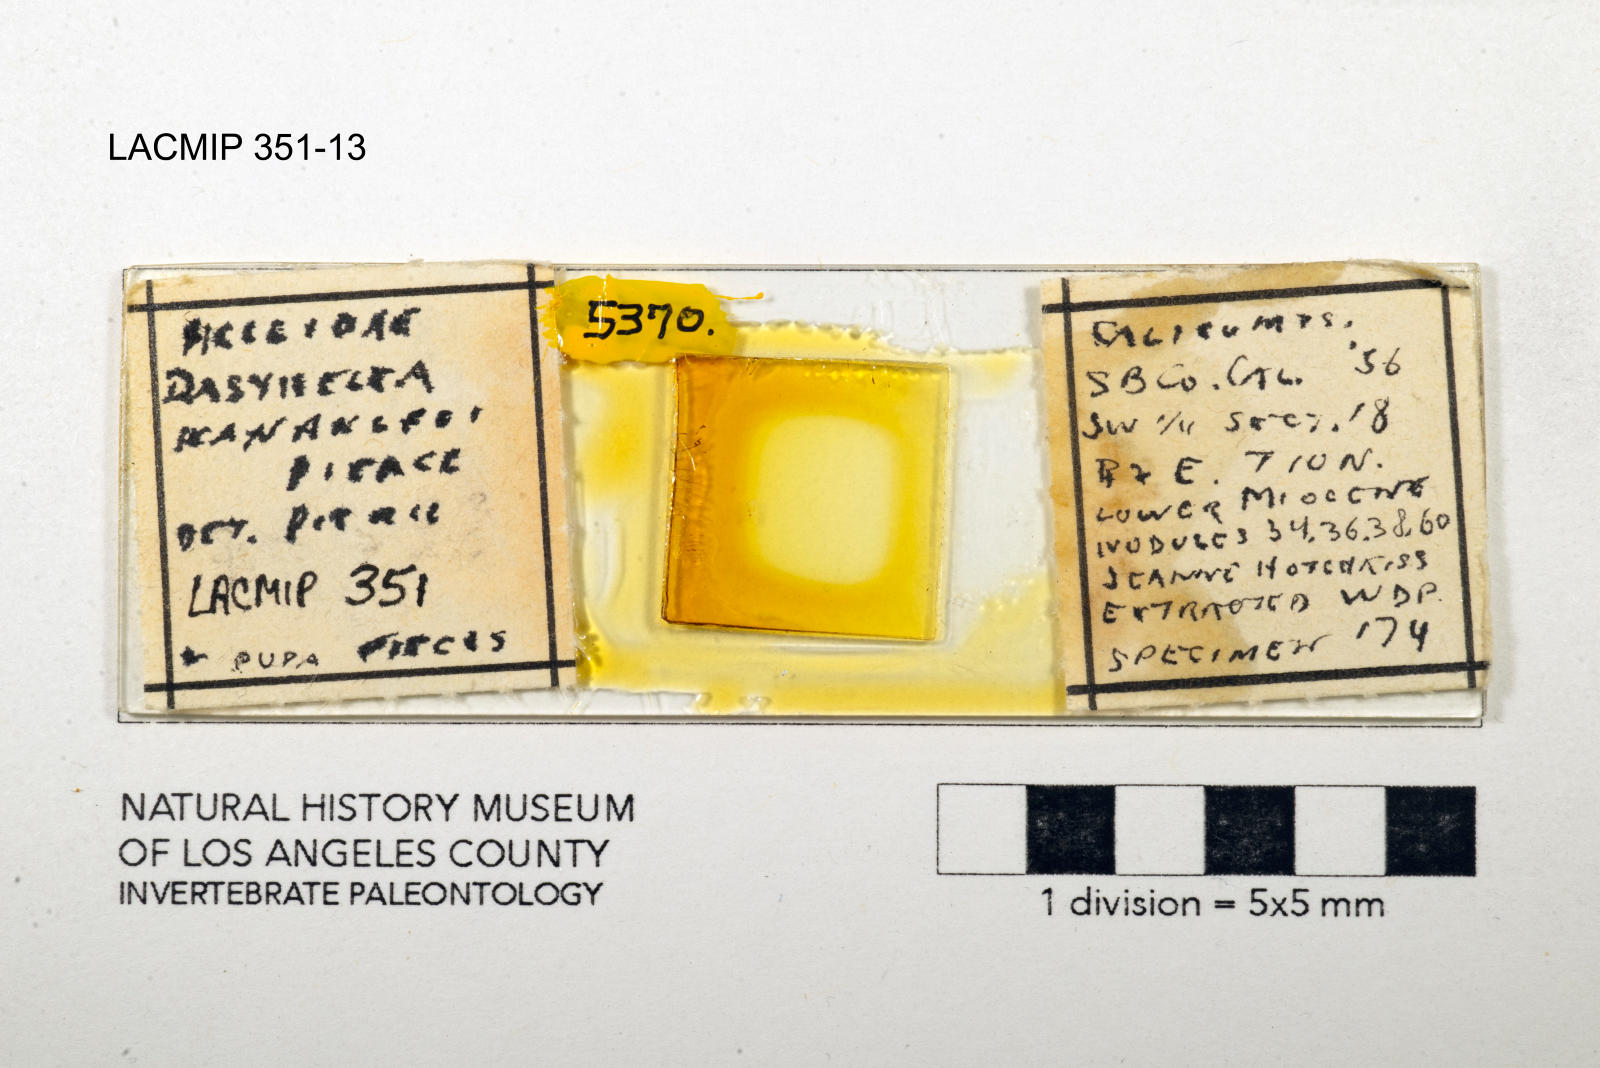 LACMIP 351-13
HELEIDAE
DASYHELEA
KANAKOFFI
PIERCE
DET. PIERCE
LACMIP 351
+ PUPA PIECES
5370.
CALICO MTS.
SB CO. CAL. '56
SW 1/4 SECT. 18
R 2 E. T 10 N.
LOWER MIOCENE
NODULES 34,36,38,60
JEANNE HOTCHKISS
EXTRACTED WDP.
SPECIMEN 174
NATURAL HISTORY MUSEUM
OF LOS ANGELES COUNTY
INVERTEBRATE PALEONTOLOGY
1 division = 5x5 mm